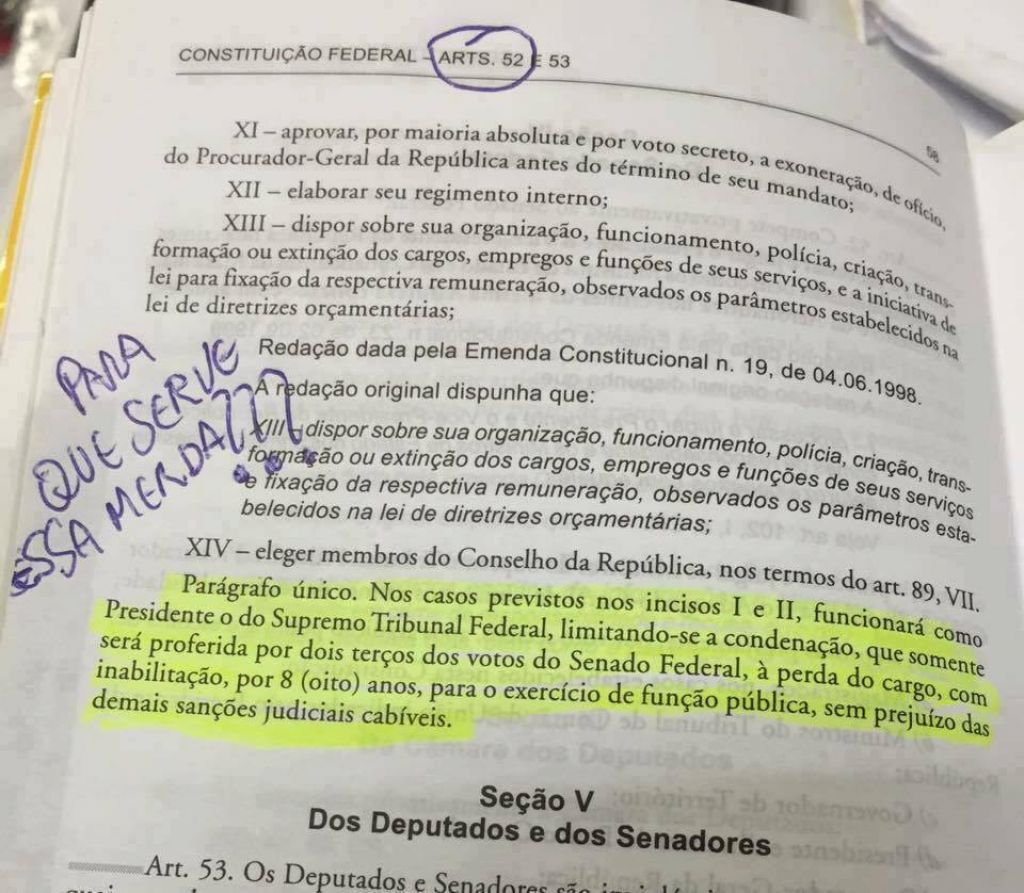 CONSTITUIÇÃO FEDERAL – ARTS. 52 E 53
58
XI – aprovar, por maioria absoluta e por voto secreto, a exoneração, de ofício,
do Procurador-Geral da República antes do término de seu mandato;
XII – elaborar seu regimento interno;
XIII – dispor sobre sua organização, funcionamento, polícia, criação, trans-
formação ou extinção dos cargos, empregos e funções de seus serviços, e a iniciativa de
lei para fixação da respectiva remuneração, observados os parâmetros estabelecidos na
lei de diretrizes orçamentárias;
Redação dada pela Emenda Constitucional n. 19, de 04.06.1998.
A redação original dispunha que:
XIII – dispor sobre sua organização, funcionamento, polícia, criação, trans-
formação ou extinção dos cargos, empregos e funções de seus serviços
e fixação da respectiva remuneração, observados os parâmetros esta-
belecidos na lei de diretrizes orçamentárias;
PARA
QUE SERVE
ESSA MERDA???
XIV – eleger membros do Conselho da República, nos termos do art. 89, VII.
Parágrafo único. Nos casos previstos nos incisos I e II, funcionará como
Presidente o do Supremo Tribunal Federal, limitando-se a condenação, que somente
será proferida por dois terços dos votos do Senado Federal, à perda do cargo, com
inabilitação, por 8 (oito) anos, para o exercício de função pública, sem prejuízo das
demais sanções judiciais cabíveis.
Seção V
Dos Deputados e dos Senadores
Art. 53. Os Deputados e Senadores são